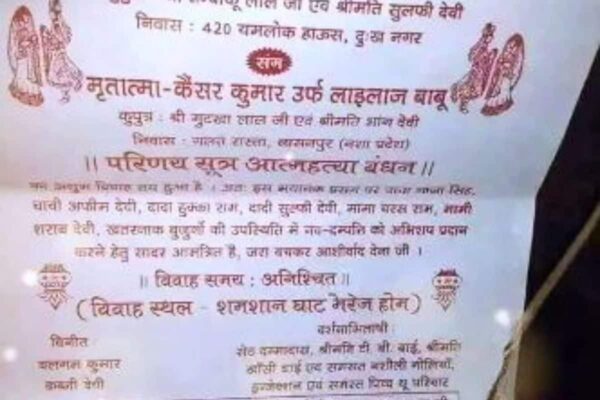 लाल जी एवं श्रीमति सुलफी देवी
निवास : 420 यमलोक हाऊस, दुःख नगर
संग
मृतात्मा-कैंसर कुमार उर्फ लाइलाज बाबू
कुपुत्र : श्री गुटखा लाल जी एवं श्रीमति भांग देवी
निवास : गलत रास्ता, व्यसनपुर (नशा प्रदेश)
॥ परिणय सूत्र आत्महत्या बंधन ॥
का अशुभ विवाह तय हुआ है । अतः इस भयानक प्रसंग पर चाचा गांजा सिंह,
चाची अफीम देवी, दादा हुक्का राम, दादी सुल्फी देवी, मामा चरस राम, मामी
शराब देवी, खतरनाक बुजुर्गो की उपस्थिति में नव-दम्पति को अभिशाप प्रदान
करने हेतु सादर आमंत्रित है, जरा बचकर आशीर्वाद देना जी ।
॥ विवाह समय : अनिश्चित ॥
(विवाह स्थल - शमशान घाट मेरेज होन)
विनीत
दर्शनाभिलाषी :
बलगम कुमार
सेठ दम्मादास, श्रीमति टी. बी. बाई, श्रीमति
खाँसी बाई एवं समस्त नशीली गोलियाँ,
इन्जेक्शन एवं समस्त परिवार